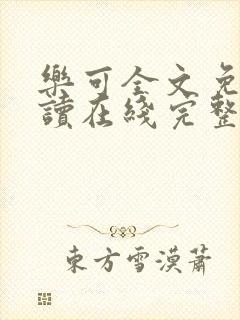 樂可全文免
讀在綫完整
東方雪漠蕭